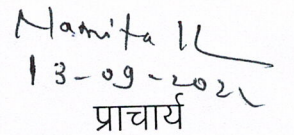 Namita K
13-09-202
प्राचार्य